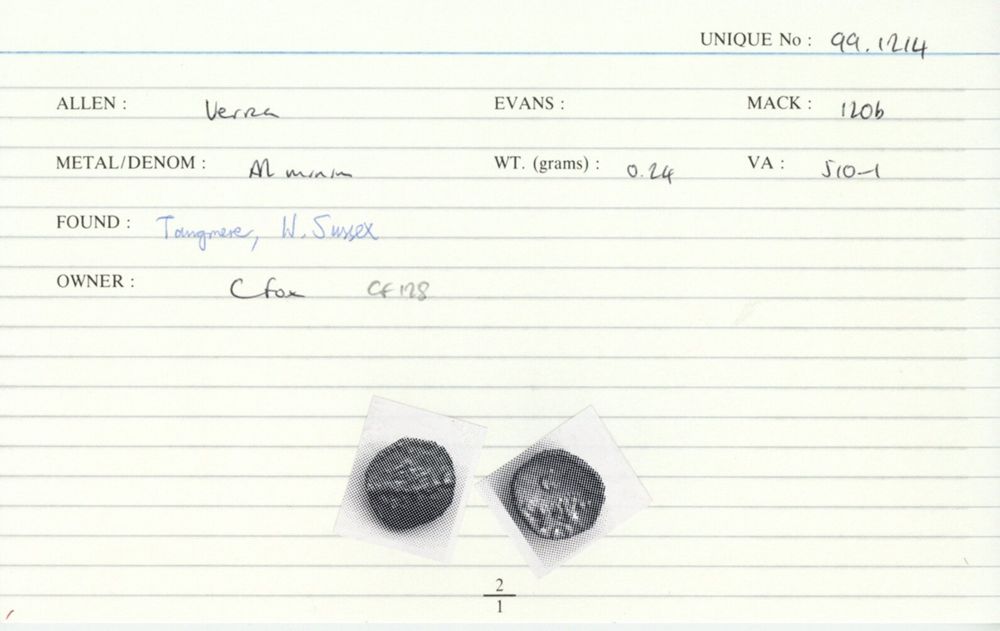 UNIQUE No : 99.1214
ALLEN : Verica EVANS : MACK : 120b
METAL/DENOM : AR minim WT. (grams) : 0.24 VA : 510-1
FOUND : Tangmere, W. Sussex
OWNER : C Fox CF128
2
1